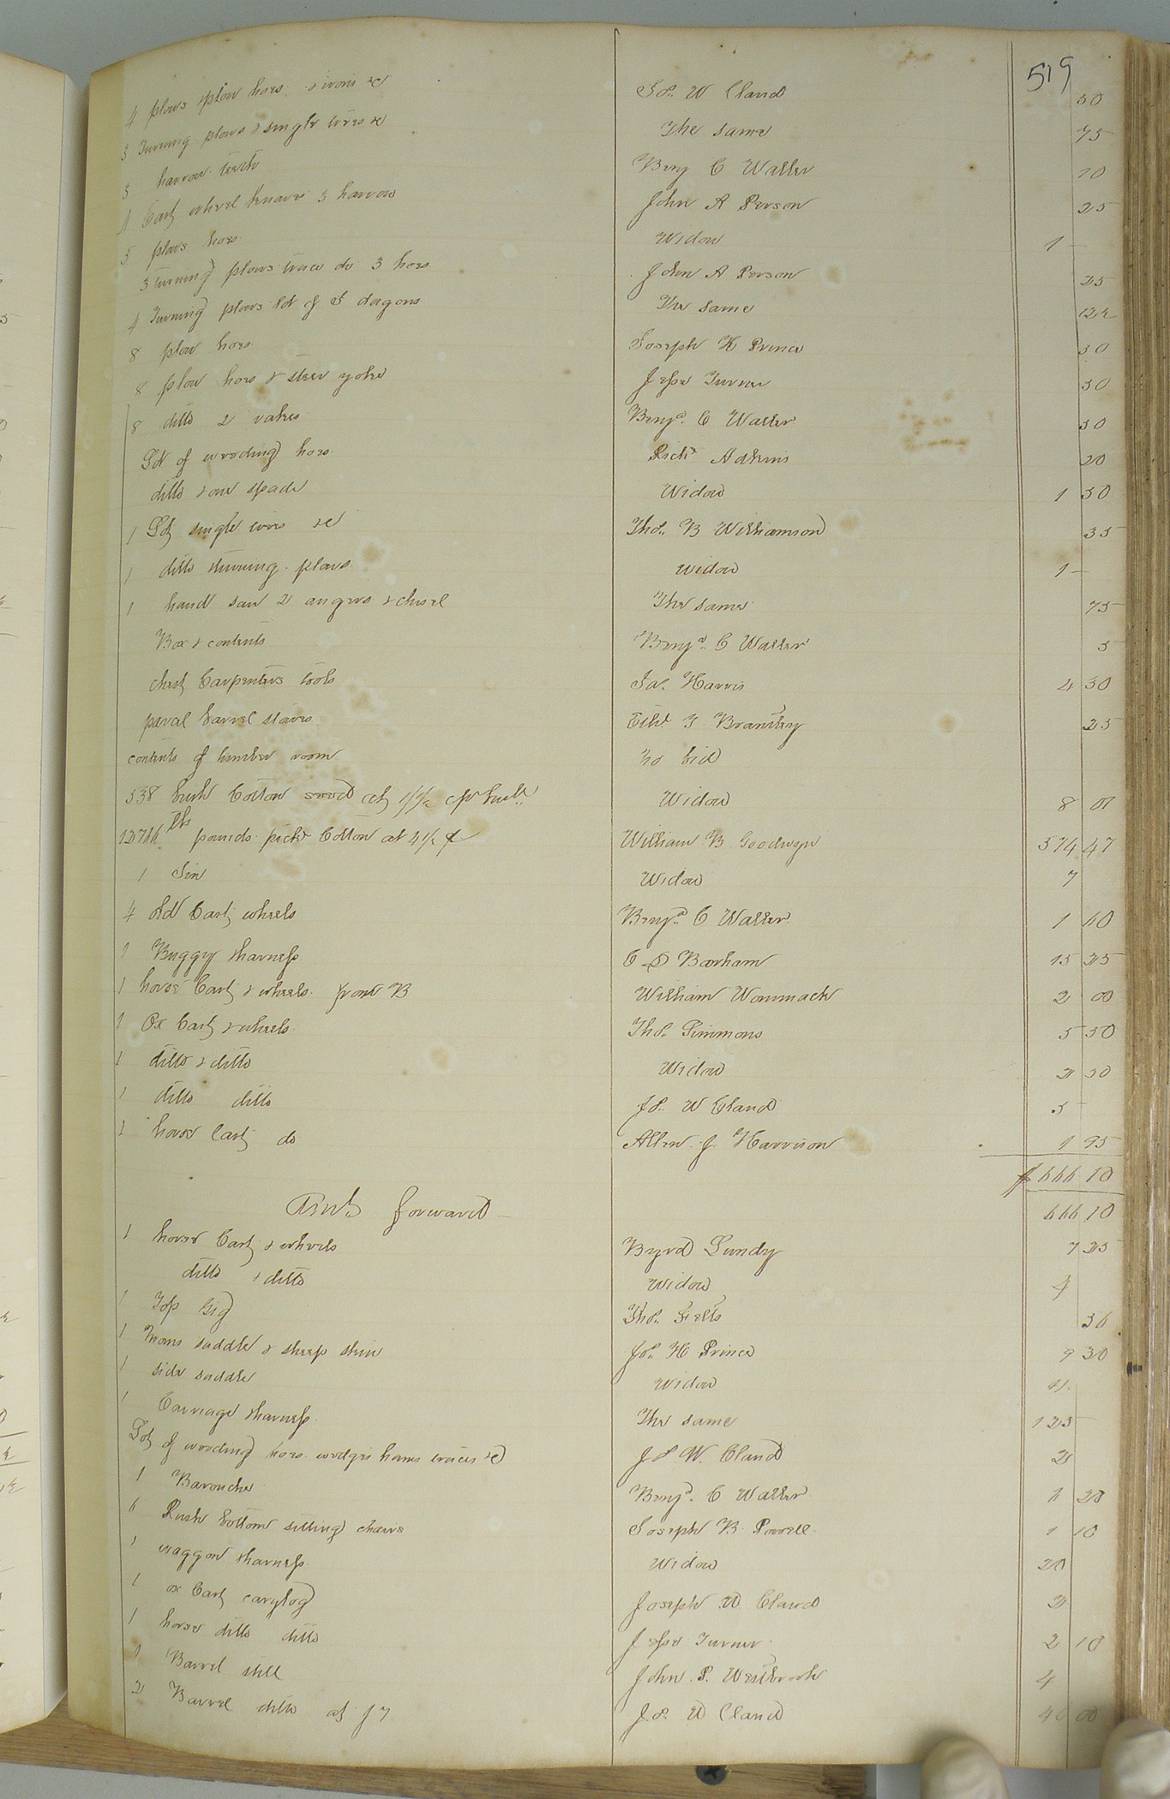 519
4 plows plow hoes & irons &c Jos. W Claud 50
3 Turning plows & single trees &c The same 75
3 harrow teeth Benj C Waller 10
1 Cart wheel 3 harrows John A Person 25
5 plow hoes Widow 1 -
3 turning plows do 3 hoes John A Person 25
4 Turning plows Lot of dagons The same
8 plow hoes Joseph H Prince 50
8 plow hoes & steer yoke Jesse Turner 50
8 ditto 2 rakes Benjn. C Waller 50
Lot of weeding hoes Richd Adkins 20
ditto & one spade Widow 1 50
1 Lot single trees &c Thos. B Williamson 35
1 ditto turning plows Widow 1 -
1 hand saw 2 augers & chisel The same 75
Box & contents Benjn. C Waller 5
chest Carpenters tools Ja. Harris 4 50
parcel barrel staves Brantley 25
contents of lumber room No bid
538 bush Cotton seed at 1 1/2 c pr bush. Widow 8 07
12766 lbs pounds pickd Cotton at 4 1/2 ¢ William B Goodwyn 574 47
1 Gin Widow 7
4 old Cart wheels Benjn. C Waller 1 40
1 Buggy & harness C D Barham 15 25
1 horse Cart & wheels B William Wommack 2 00
1 Ox Cart & wheels Thos. Simmons 5 50
1 ditto & ditto Widow 2 50
1 ditto ditto Js. W Claud 5 -
1 horse Cart do Allen J Harrison 1 95
$666 10
Amt. forward 666 10
1 horse Cart & wheels Byrd Gundy 7 25
ditto & ditto Widow 4
1 Top Gig Thos. Felts 36
1 Mans saddle & sheep skin Jos. H Prince 9 50
1 side saddle Widow
1 Carriage & harness The same 125
Lot of weeding hoes wedges hames traces &c Js W. Claud 2
1 Barouche Benjn. C Waller
6 Rush bottom sitting chairs Joseph B Powell 1 10
1 waggon & harness Widow 20
1 ox Cart carylog Joseph W Claud 2
1 horse ditto ditto Jesse Turner 2 10
1 Barrel still John P. Westbrook 4
2 Barrel ditto at $ 7 Js. W Claud 00